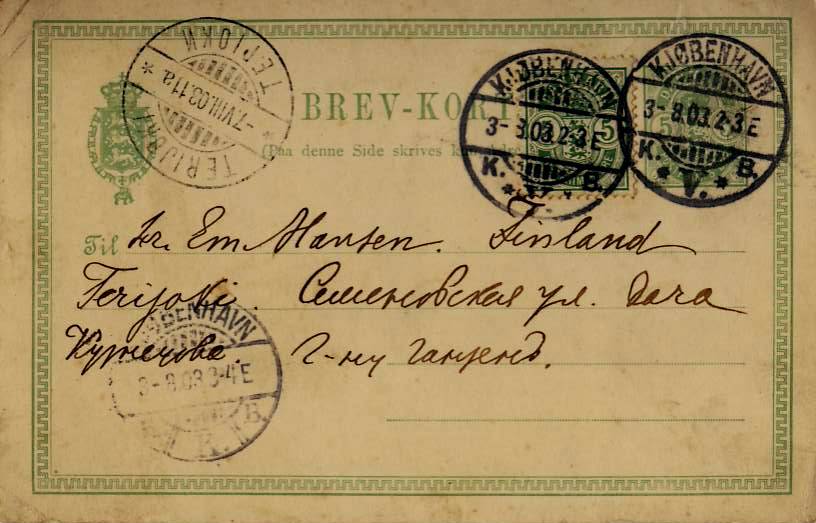 TERIJOKI ТЕРІОКИ
-7.VIII.03.11a.
BREV-KORT
(Paa denne Side skrives kun
KJØBENHAVN
3-8.03.2-3E
K. V. B.
KJØBENHAVN
3-8.03.2-3E
K. V. B.
5
5
Til Hr. Em Hansen. Finland
Terijoki. Семеновская ул. Дача
Кузнецова. Г-ну Ганзенъ.
KJØBENHAVN
3-8.03 3-4E
K. B.